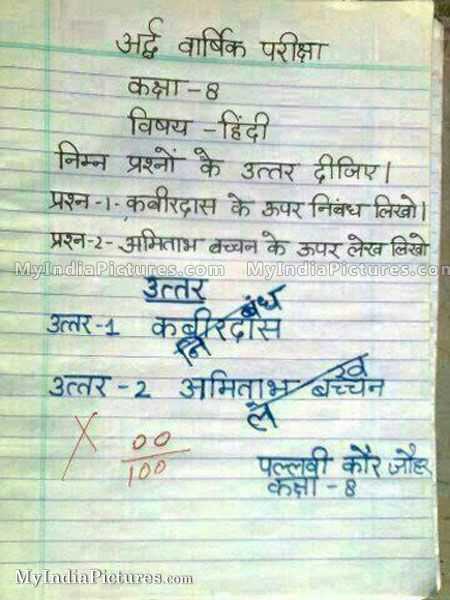 अर्द्ध वार्षिक परीक्षा
कक्षा - 8
विषय - हिंदी
निम्न प्रश्नों के उत्तर दीजिए।
प्रश्न-1- कबीरदास के ऊपर निबंध लिखो।
प्रश्न-2- अमिताभ बच्चन के ऊपर लेख लिखो
MyIndiaPictures.com MyIndiaPictures.com
उत्तर
उत्तर-1 कबीरदास
निबंध
उत्तर-2 अमिताभ बच्चन
लेख
00
100
पल्लवी कौर जौहर
कक्षा - 8
MyIndiaPictures.com